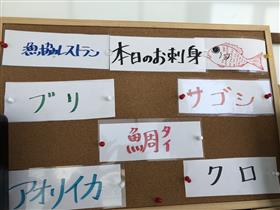 漁協レストラン
本日のお刺身
ブリ
サゴシ
鯛タイ
アオリイカ
クロ